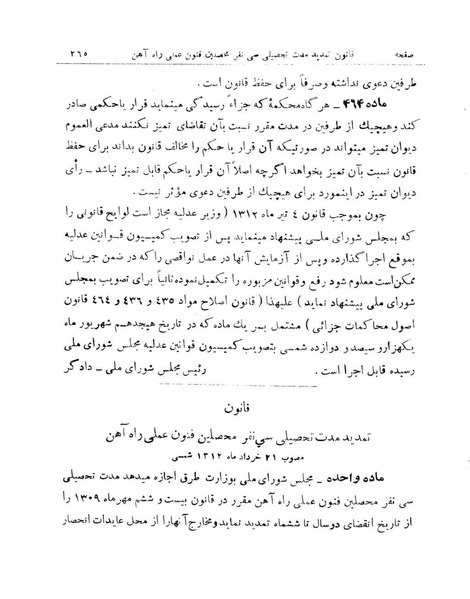 صفحه قانون تمدید مدت تحصیلی سی نفر محصلین فنون عملی راه آهن ۲۶۵
طرفین دعوی نداشته و صرفاً برای حفظ قانون است .
ماده ۴۶۴ ـ هرگاه محکمهٔ که جزاءً رسیدگی مینماید قرار یا حکمی صادر
کند و هیچیك از طرفین در مدت مقرر نسبت بآن تقاضای تمیز نکنند مدعی العموم
دیوان تمیز میتواند در صورتیکه آن قرار یا حکم را مخالف قانون بداند برای حفظ
قانون نسبت بآن تمیز بخواهد اگرچه اصلاً آن قرار یا حکم قابل تمیز نباشد ـ رأی
دیوان تمیز در اینمورد برای هیچیك از طرفین دعوی مؤثر نیست .
چون بموجب قانون ٤ تیر ماه ۱۳۱۲ ( وزیر عدلیه مجاز است لوایح قانونی را
که بمجلس شورای ملی پیشنهاد مینماید پس از تصویب کمیسیون قوانین عدلیه
بموقع اجرا گذارده و پس از آزمایش آنها در عمل نواقصی را که در ضمن جریان
ممکن است معلوم شود رفع و قوانین مزبوره را تکمیل نموده ثانیاً برای تصویب بمجلس
شورای ملی پیشنهاد نماید ) علیهذا ( قانون اصلاح مواد ٤٣٥ و ٤٣٦ و ٤٦٤ قانون
اصول محاکمات جزائی ) مشتمل بر یك ماده که در تاریخ هیجدهم شهریور ماه
یکهزار و سیصد و دوازده شمسی بتصویب کمیسیون قوانین عدلیه مجلس شورای ملی
رسیده قابل اجرا است . رئیس مجلس شورای ملی ـ دادگر
قانون
تمدید مدت تحصیلی سی نفر محصلین فنون عملی راه آهن
مصوب ۲۱ خرداد ماه ۱۳۱۲ شمسی
ماده واحده ـ مجلس شورای ملی بوزارت طرق اجازه میدهد مدت تحصیلی
سی نفر محصلین فنون عملی راه آهن مقرر در قانون بیست و ششم مهرماه ۱۳۰۹ را
از تاریخ انقضای دو سال تا ششماه تمدید نماید و مخارج آنها را از محل عایدات انحصار